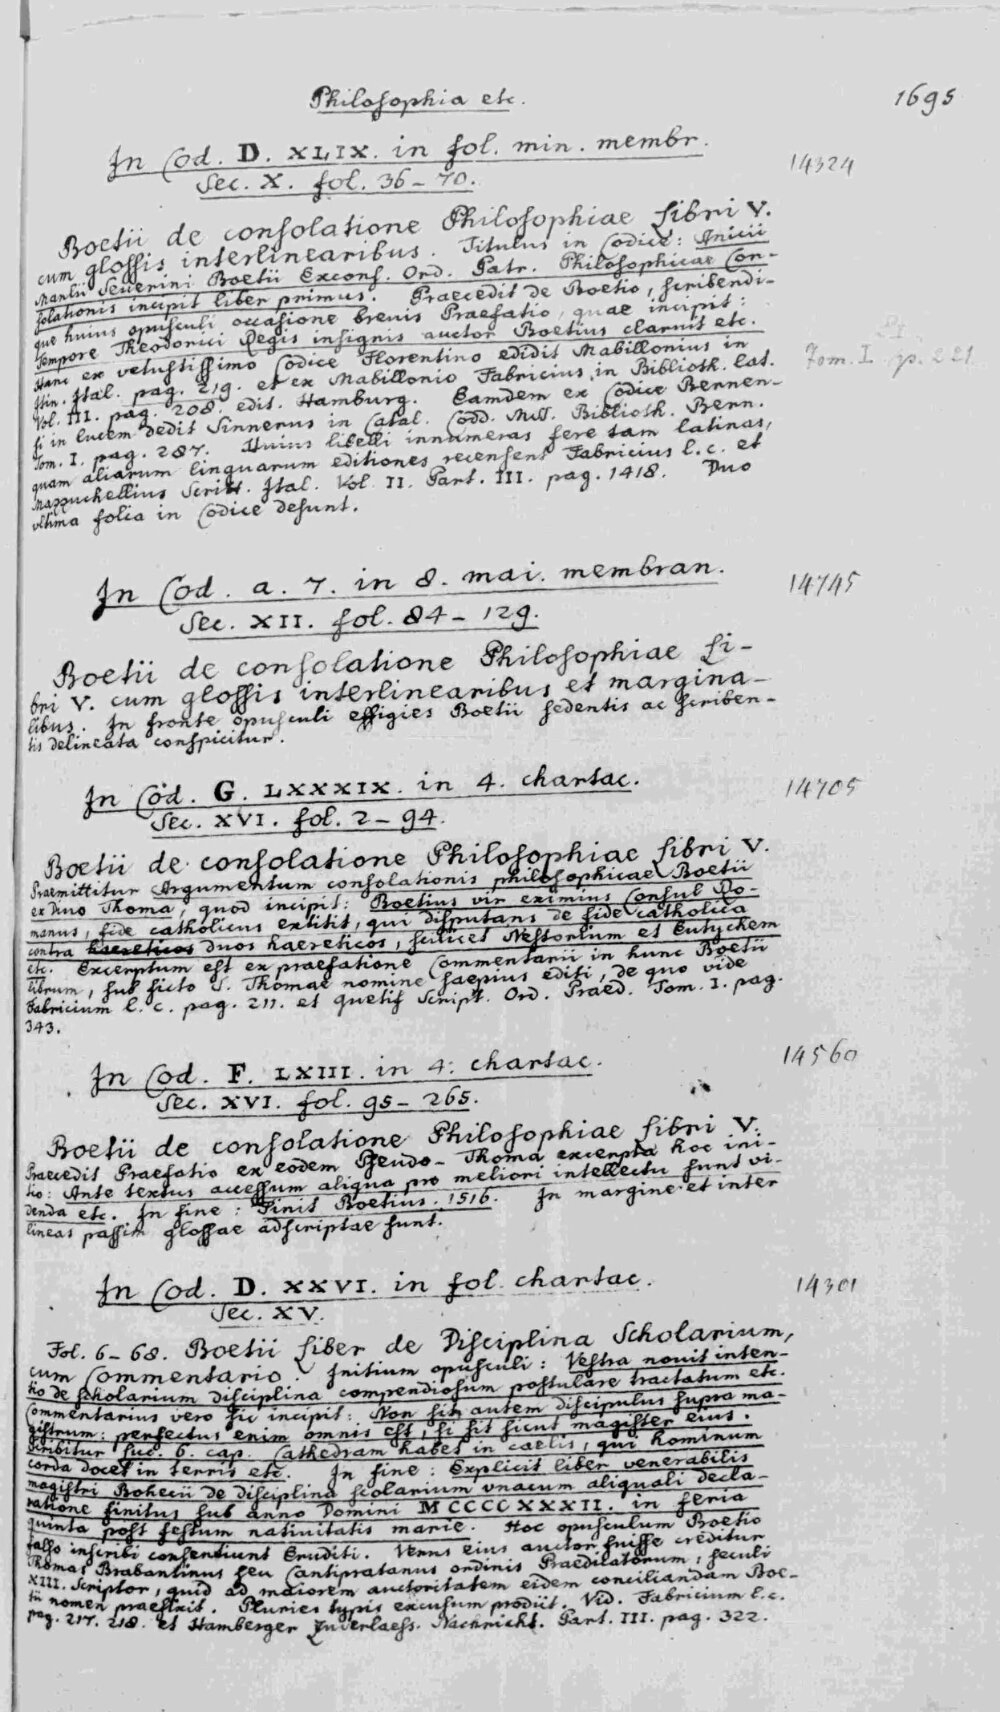 Philosophia etc.
1695
In Cod. D. XLIX. in fol. min. membr.
14324
Sec. X. fol. 36-70.
Boetii de consolatione Philosophiae Libri V.
cum glossis interlinearibus. Titulus in Codice: Anicii
Manlii Severini Boetii Excons. Ord. Patr. Philosophicae Con-
solationis incipit liber primus. Praecedit de Boetio, scribendi-
que huius opusculi occasione brevis Praefatio, quae incipit:
Tempore Theodorici Regis insignis auctor Boetius claruit etc.
Hanc ex vetustissimo Codice Florentino edidit Mabillonius in
Itin. Ital. pag. 219. et ex Mabillonio Fabricius in Biblioth. lat.
Tom. I. p. 221
Vol. III. pag. 208. edit. Hamburg. Eamdem ex Codice Bernen-
si in lucem dedit Sinnerus in Catal. Codd. MSS. Biblioth. Bern.
Tom. I. pag. 287. Huius libelli innumeras fere tam latinas,
quam aliarum linguarum editiones recensent Fabricius l. c. et
Mazzuchellius Scritt. Ital. Vol. II. Part. III. pag. 1418. Duo
ultima folia in Codice desunt.
In Cod. a. 7. in 8. mai. membran.
14745
Sec. XII. fol. 84-129.
Boetii de consolatione Philosophiae Li-
bri V. cum glossis interlinearibus et margina-
libus. In fronte opusculi effigies Boetii sedentis ac scriben-
tis delineata conspicitur.
In Cod. G. LXXXIX. in 4. chartac.
14705
Sec. XVI. fol. 2-94.
Boetii de consolatione Philosophiae Libri V.
Praemittitur Argumentum consolationis philosophicae Boetii
ex Divo Thoma, quod incipit: Boetius vir eximius Consul Ro-
manus, fide catholicus extitit, qui disputans de fide catholica
contra haereticos duos haereticos, scilicet Nestorium et Eutychem
etc. Excerptum est ex praefatione Commentarii in hunc Boetii
librum, sub ficto S. Thomae nomine saepius editi, de quo vide
Fabricium l. c. pag. 211. et Quetif Script. Ord. Praed. Tom. I. pag.
343.
In Cod. F. LXIII. in 4. chartac.
14560
Sec. XVI. fol. 95-265.
Boetii de consolatione Philosophiae Libri V.
Praecedit Praefatio ex eodem Pseudo-Thoma excerpta hoc ini-
tio: Ante textus accessum aliqua pro meliori intellectu sunt vi-
denda etc. In fine: Finit Boetius. 1516. In margine et inter
lineas passim glossae adscriptae sunt.
In Cod. D. XXVI. in fol. chartac.
14301
Sec. XV.
Fol. 6-68. Boetii Liber de Disciplina Scholarium,
cum Commentario. Initium opusculi: Vestra novit inten-
tio de scholarium disciplina compendiosum postulare tractatum etc.
Commentarius vero sic incipit: Non sit autem discipulus supra ma-
gistrum: perfectus enim omnis est, si sit sicut magister eius.
scribitur luc. 6. cap. Cathedram habet in caelis, qui hominum
corda docet in terris etc. In fine: Explicit liber venerabilis
magistri Bohecii de disciplina scolarium vnacum aliquali decla-
ratione finitus sub anno Domini MCCCCXXXII. in feria
quinta post festum nativitatis marie. Hoc opusculum Boetio
falso inscribi consentiunt Eruditi. Verus eius auctor fuisse creditur
Thomas Brabantinus seu Cantipratanus ordinis Praedicatorum, seculi
XIII. Scriptor, quid ad maiorem auctoritatem eidem conciliandam Boe-
tii nomen praefixit. Pluries typis excusum prodiit. Vid. Fabricium l. c.
pag. 217. 218. et Hamberger Zuverlaess. Nachricht. Part. III. pag. 322.